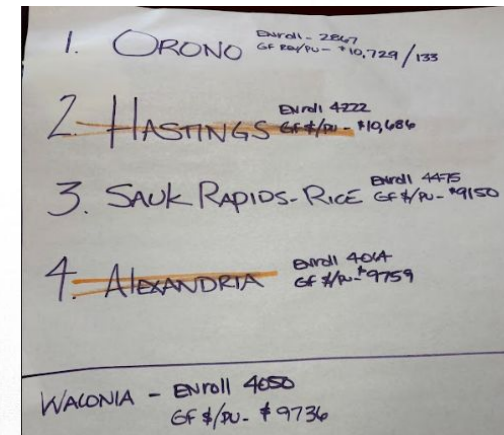 1. ORONO Enroll - 2867
GF Rev/PU - $10,729 / 133
2. HASTINGS Enroll 4222
GF $/PU - $10,686
3. SAUK RAPIDS-RICE Enroll 4475
GF $/PU - $9150
4. ALEXANDRIA Enroll 4064
GF $/PU - $9759
WACONIA - ENROLL 4050
GF $/PU - $9736